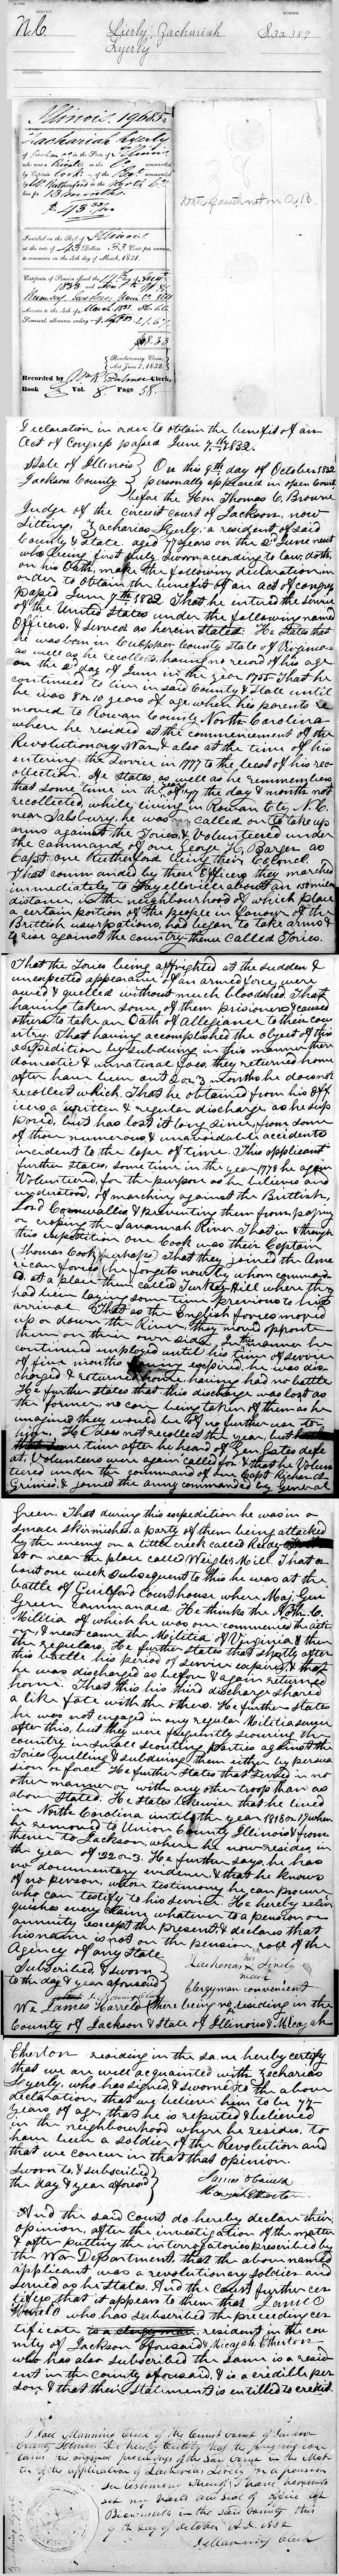 SERVICE
NUMBER
N.C.
Lierly, Zachariah
Lyerly
S.32,389
CONTENTS
Illinois. 19685
Zachariah Lyerly
of Jackson Co. in the State of Illinois
who was a Private in the commanded
by Captain Cook of the Regt commanded
by Col Rutherford in the North C.
line for 13 months
Inscribed on the Roll of Illinois
at the rate of 43 Dollars 33 Cents per annum,
to commence on the 4th day of March, 1831.
Certificate of Pension issued the day of
1833
Arrears to the 4th of March 1833
Semi-anl. allowance ending 4 Sept 33 21.67
{Revolutionary Claim,
Act June 7, 1832.}
Recorded by Clerk,
Book Vol. 8 Page 58.
Declaration in order to obtain the benefit of an
Act of Congress passed June 7th 1832.
State of Illinois } On this 9th day of October 1832
Jackson County } personally appeared in open Court
before the Hon Thomas C. Browne
Judge of the circuit court of Jackson, now
sitting, Zacharias Lyerly, a resident of said
County & State, aged 77 years on the 2d June next
who being first duly sworn according to law, doth,
on his Oath, make the following declaration in
order to obtain the benefit of an act of congress
passed June 7th 1832 That he entered the service
of the United States under the following named
Officers, & served as herein stated. He states that
he was born in Culpepper County State of Virginia
as well as he recollects, having no record of his age
on the 2d day of June in the year 1755 That he
continued to live in said County & State until
he was 8 or 10 years of age when his parents re
moved to Rowan County North Carolina
where he resided at the commencement of the
Revolutionary War, & also at the time of his
entering the service in 1777 to the best of his rec-
ollection. He states, as well as he remembers
that some time in the year of 1777 the day & month not
recollected, while living in Rowan Cty, N.C.
near Salsbury, he was called on to take up
arms against the Tories, & Volunteered under
the command of one George H. Barger as
Capt one Rutherford being their Colonel.
That commanded by these Officers they marched
immediately to Fayetteville about an 150 miles
distance, in the neighbourhood of which place
a certain portion of the people in favour of the
Brittish usurpations, had begun to take arms &
to rise against the country, thence called Tories.
That the Tories being affrighted at the sudden &
unexpected appearance of an armed force were
awed & quelled without much bloodshed. That
having taken some of them prisoners & caused
others to take an Oath of Allegiance to their cou
ntry. That having accomplished the object of this
expedition by subduing in this manner their
domestic & unnatural foes, they returned home
after having been out 2 or 3 months he does not
recollect which. That he obtained from his Off
icers a written & regular discharge as he supp
osed, but has lost it long since, from some
of those numerous & unavoidable accidents
incident to the lapse of time. This applicant
further states, some time in the year 1778 he again
Volunteered, for the purpose as he believes and
understood, of marching against the Brittish,
Lord Cornwallis & preventing them from passing
or crossing the Savannah River. That in & through
this expedition one Cook was their Captain
(Thomas Cook perhaps) That they joined the Ame
rican forces (he forgets now by whom command
ed, at a place then called Turkey Hill where they
had been laying some time previous to his
arrival. That as the English forces moved
up or down the River, they moved opposite
them on their own side. In this manner he
continued employed until his time of service
of five months having expired, he was dis
charged & returned home having had no battle
He further states that this discharge was lost as
the former, no care being taken of them as he
imagined they would be of no further use to
him. He does not recollect the year, but
some time after he heard of Gen. Gates defe
at, Volunteers were again called for & that he Volun
teered under the command of one Capt Richard
Grimes, & joined the army commanded by General
Green. That during this expedition he was in a
small skirmish, a party of them being attacked
by the enemy on a little creek called Reedy
at or near the place called Weigles Mill. That a-
bout one week subsequent to this he was at the
battle of Guilford Courthouse where Maj. Gen
Green commanded. He thinks the North C.
Militia of which he was one commenced the acti
on, & next came the Militia of Virginia & then
the regulars. He further states that shortly after
this battle his period of service expired & that
he was discharged as before & again returned
home. That this his third discharge shared
a like fate with the others. He further states
he was not engaged in any regular Militia service
after this, but they were frequently scouring the
country in small scouting parties against the
Tories quelling & subduing them either by persua
sion or force. He further states that served in no
other manner or with any other troop than as
above stated. He states likewise that he lived
in North Carolina until the year 1816 or 17 when
he removed to Union County Illinois & from
thence to Jackson, where he now resides, in
the year of 22 or 3. He further says, he has
no documentary evidence & that he knows
of no person, whose testimony he can procure
who can testify to his service. He hereby relin
quishes every claim whatever to a pension or
annuity except the present & declares that
his name is not on the pension roll of the
Agency of any state.
Subscribed & sworn } his
to the day & year aforesaid } Zacharias X Lierly
mark
Clergyman convenient
We James Harreld (there being no residing in the
County of Jackson & State of Illinois & Micajah
Etherton residing in the same hereby certify
that we are well acquainted with Zacharias
Lyerly, who has signed & sworn to the above
declaration, that we believe him to be 77
years of age, that he is reputed & believed
in the neighbourhood where he resides, to
have been a soldier of the Revolution and
that we concur in that opinion.
Sworn to & subscribed }
the day & year aforesaid }
James Harreld
Micajah Etherton
And the said Court do hereby declare their
opinion, after the investigation of the matter
& after putting the interrogatories prescribed by
the War Department that the above named
applicant was a revolutionary soldier and
served as he states. And the Court further cer
tifies, that it appears to them that James
Harreld who has subscribed the preceeding cer
tificate is a clergyman, resident in the cou
nty of Jackson aforesaid & Micajah Etherton
who has also subscribed the same is a resid
ent in the county aforesaid, & is a credible per
son & that their statement is entitled to credit.
I Clerk of the Circuit Court of Jackson
County Illinois Do hereby Certify that the foregoing con
tains the original proceedings of the said Court in the Mat
ter of the application of Zacharias Lierly for a pension
In testimony whereof I have hereunto
set my hand and seal of office at
Brownsville in the said County this
9th day of October A.D. 1832